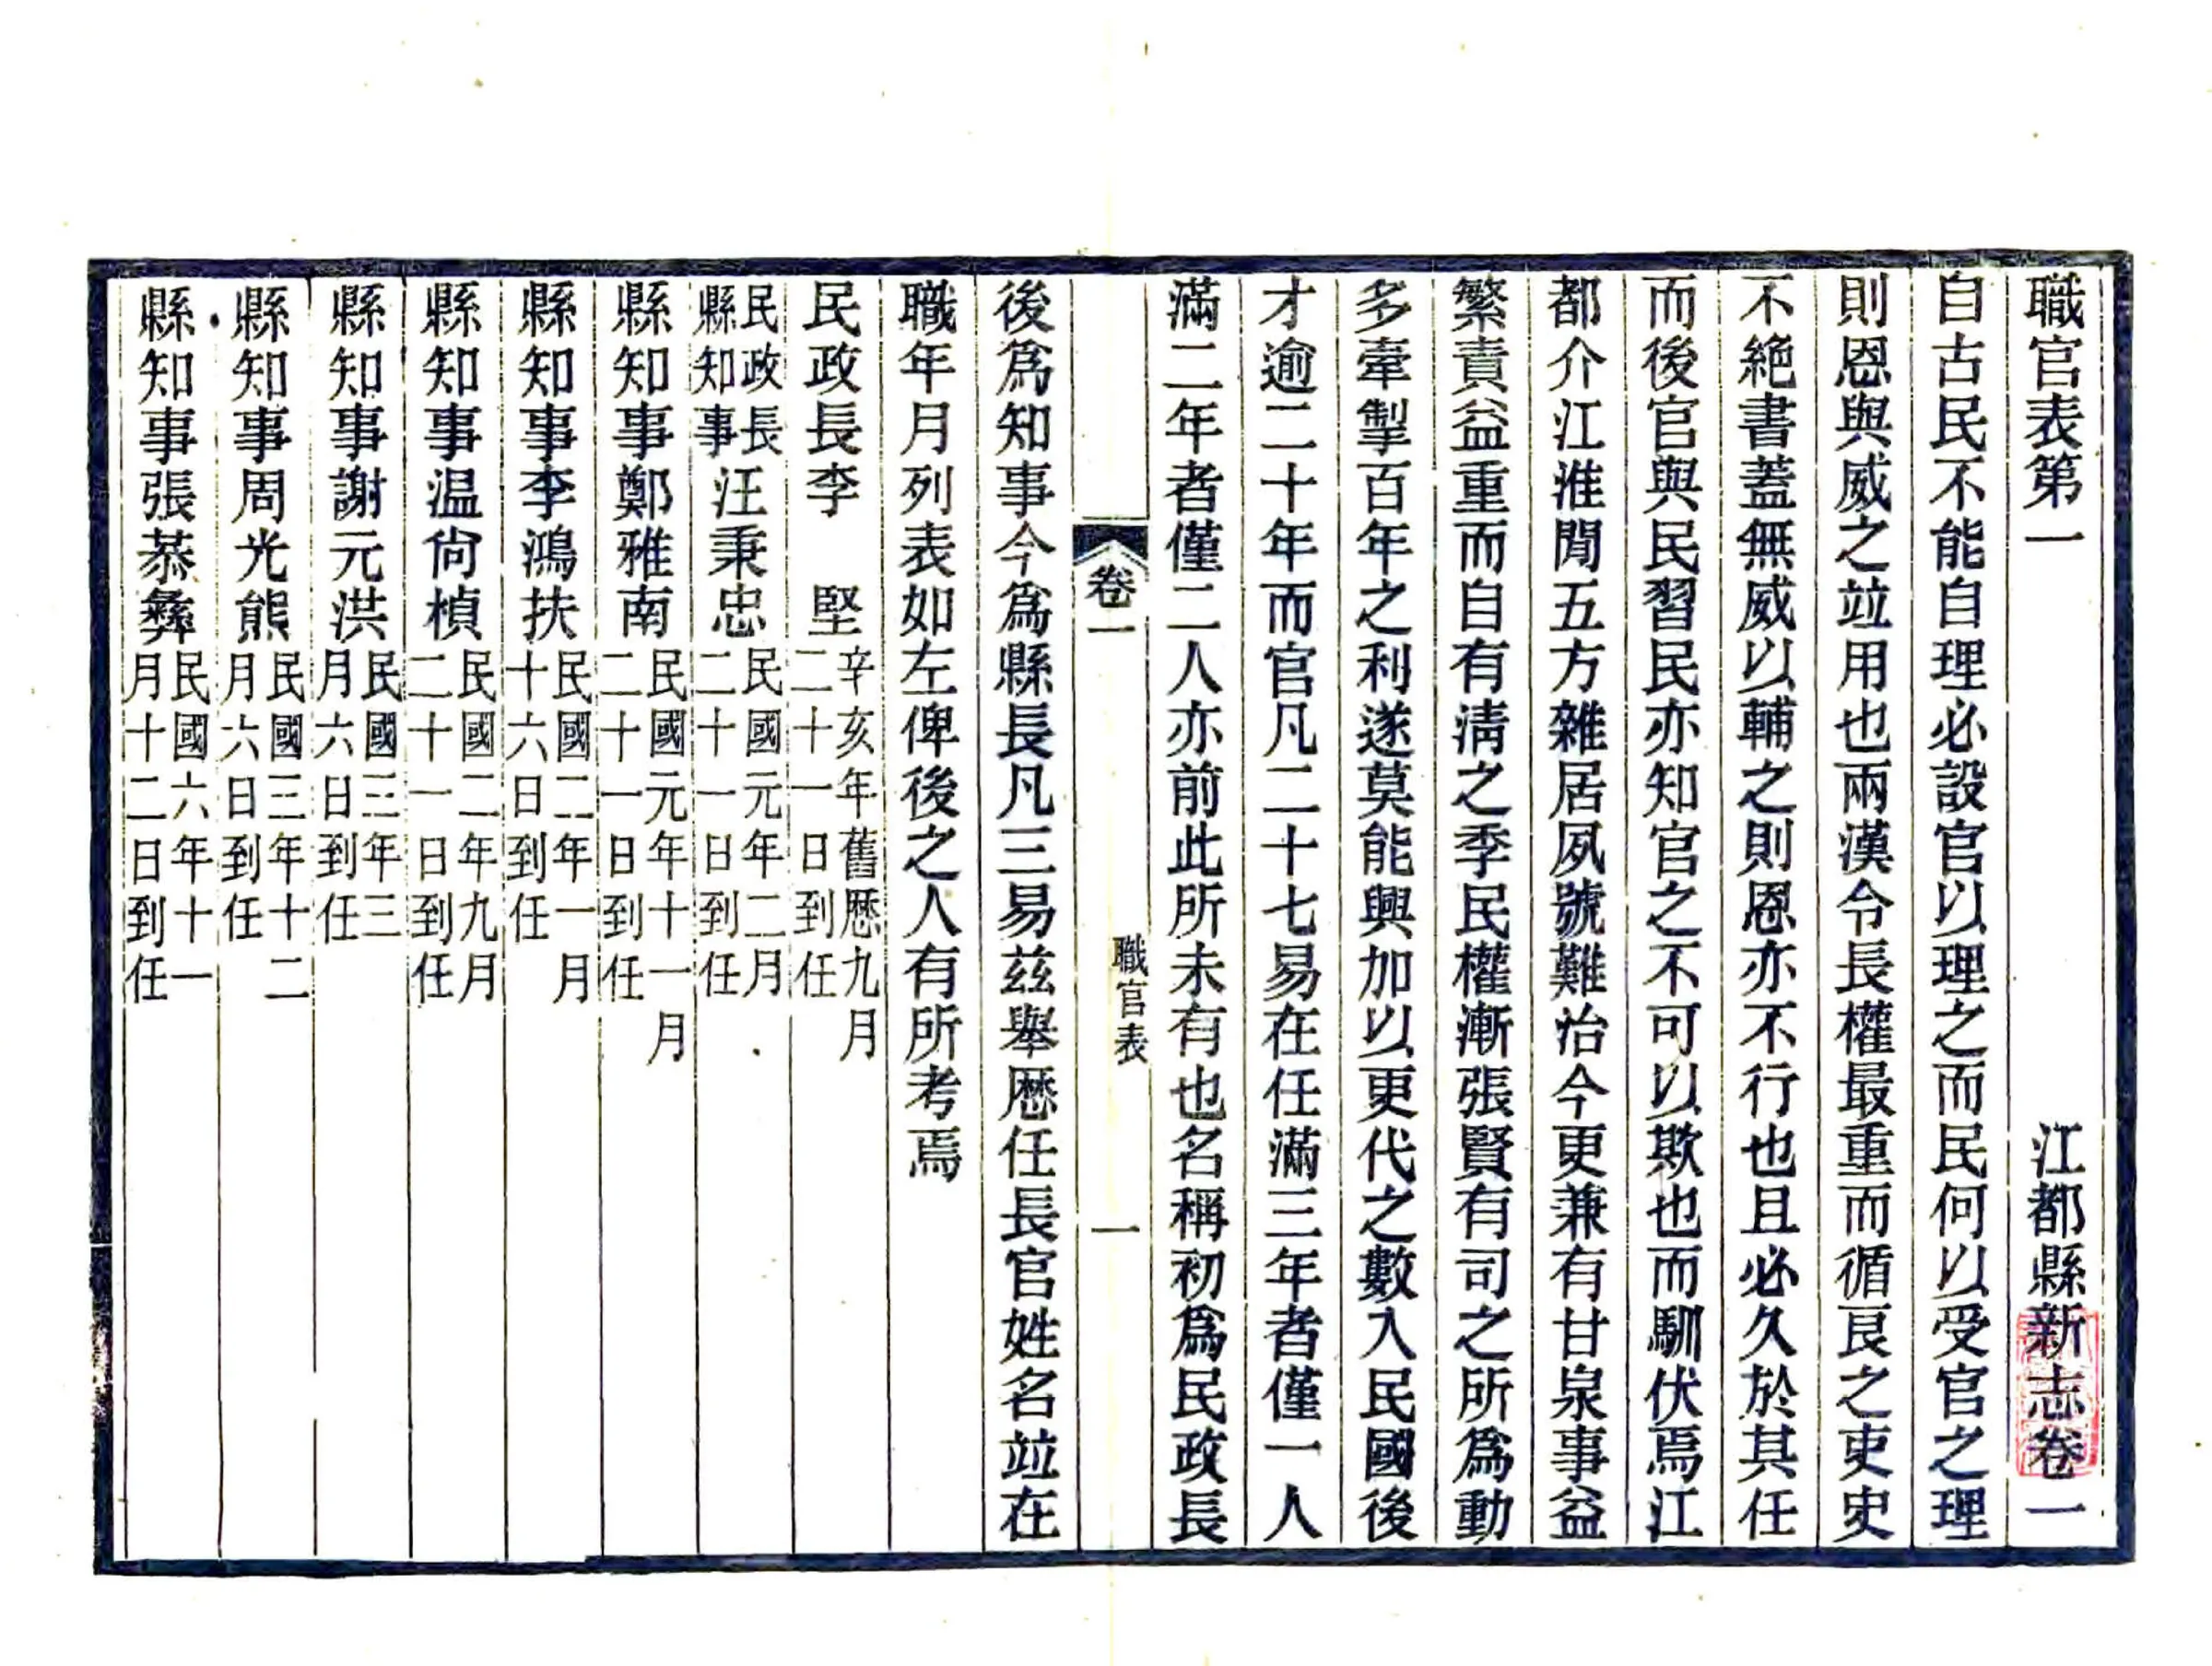 職官表第一　江都縣新志卷一
自古民不能自理必設官以理之而民何以受官之理
則恩與威之竝用也兩漢令長權最重而循良之吏史
不絶書蓋無威以輔之則恩亦不行也且必久於其任
而後官與民習民亦知官之不可以欺也而馴伏焉江
都介江淮閒五方雜居夙號難治今更兼有甘泉事益
繁責益重而自有清之季民權漸張賢有司之所爲動
多牽掣百年之利遂莫能興加以更代之數入民國後
才逾二十年而官凡二十七易在任滿三年者僅一人
滿二年者僅二人亦前此所未有也名稱初爲民政長
卷一　職官表　一
後爲知事今爲縣長凡三易茲舉歷任長官姓名竝在
職年月列表如左俾後之人有所考焉
民政長李　堅　辛亥年舊歷九月二十一日到任
民政長縣知事汪秉忠　民國元年二月二十一日到任
縣知事鄭雅南　民國元年十一月二十一日到任
縣知事李鴻扶　民國二年一月十六日到任
縣知事温尙楨　民國二年九月二十一日到任
縣知事謝元洪　民國三年三月六日到任
縣知事周光熊　民國三年十二月六日到任
縣知事張恭彝　民國六年十一月十二日到任